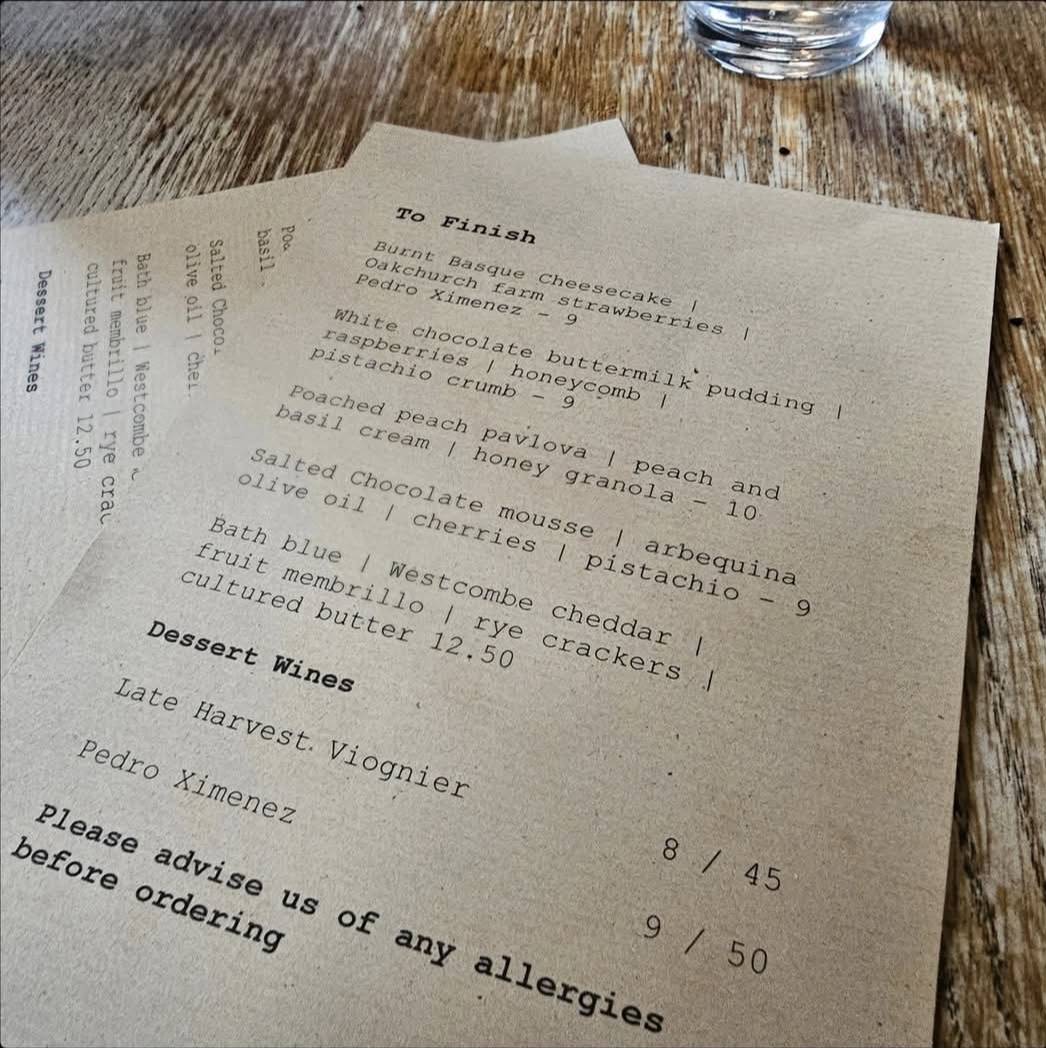 To Finish
Burnt Basque Cheesecake |
Oakchurch farm strawberries |
Pedro Ximenez - 9
White chocolate buttermilk pudding |
raspberries | honeycomb |
pistachio crumb - 9
Poached peach pavlova | peach and
basil cream | honey granola - 10
Salted Chocolate mousse | arbequina
olive oil | cherries | pistachio - 9
Bath blue | Westcombe cheddar |
fruit membrillo | rye crackers |
cultured butter 12.50
Dessert Wines
Late Harvest Viognier 8 / 45
Pedro Ximenez 9 / 50
Please advise us of any allergies
before ordering
basil
Salted
olive oil |
Bath blue | Westcombe
fruit membrillo | rye
cultured butter 12.50
Dessert Wines